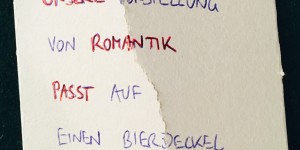 UNSERE VORSTELLUNG
VON ROMANTIK
PASST AUF
EINEN BIERDECKEL